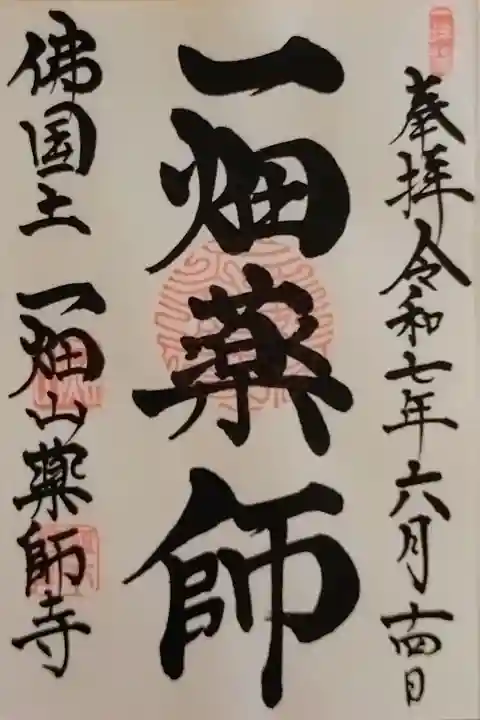 奉拝令和七年六月十四日
一畑薬師
佛国土 一畑山薬師寺